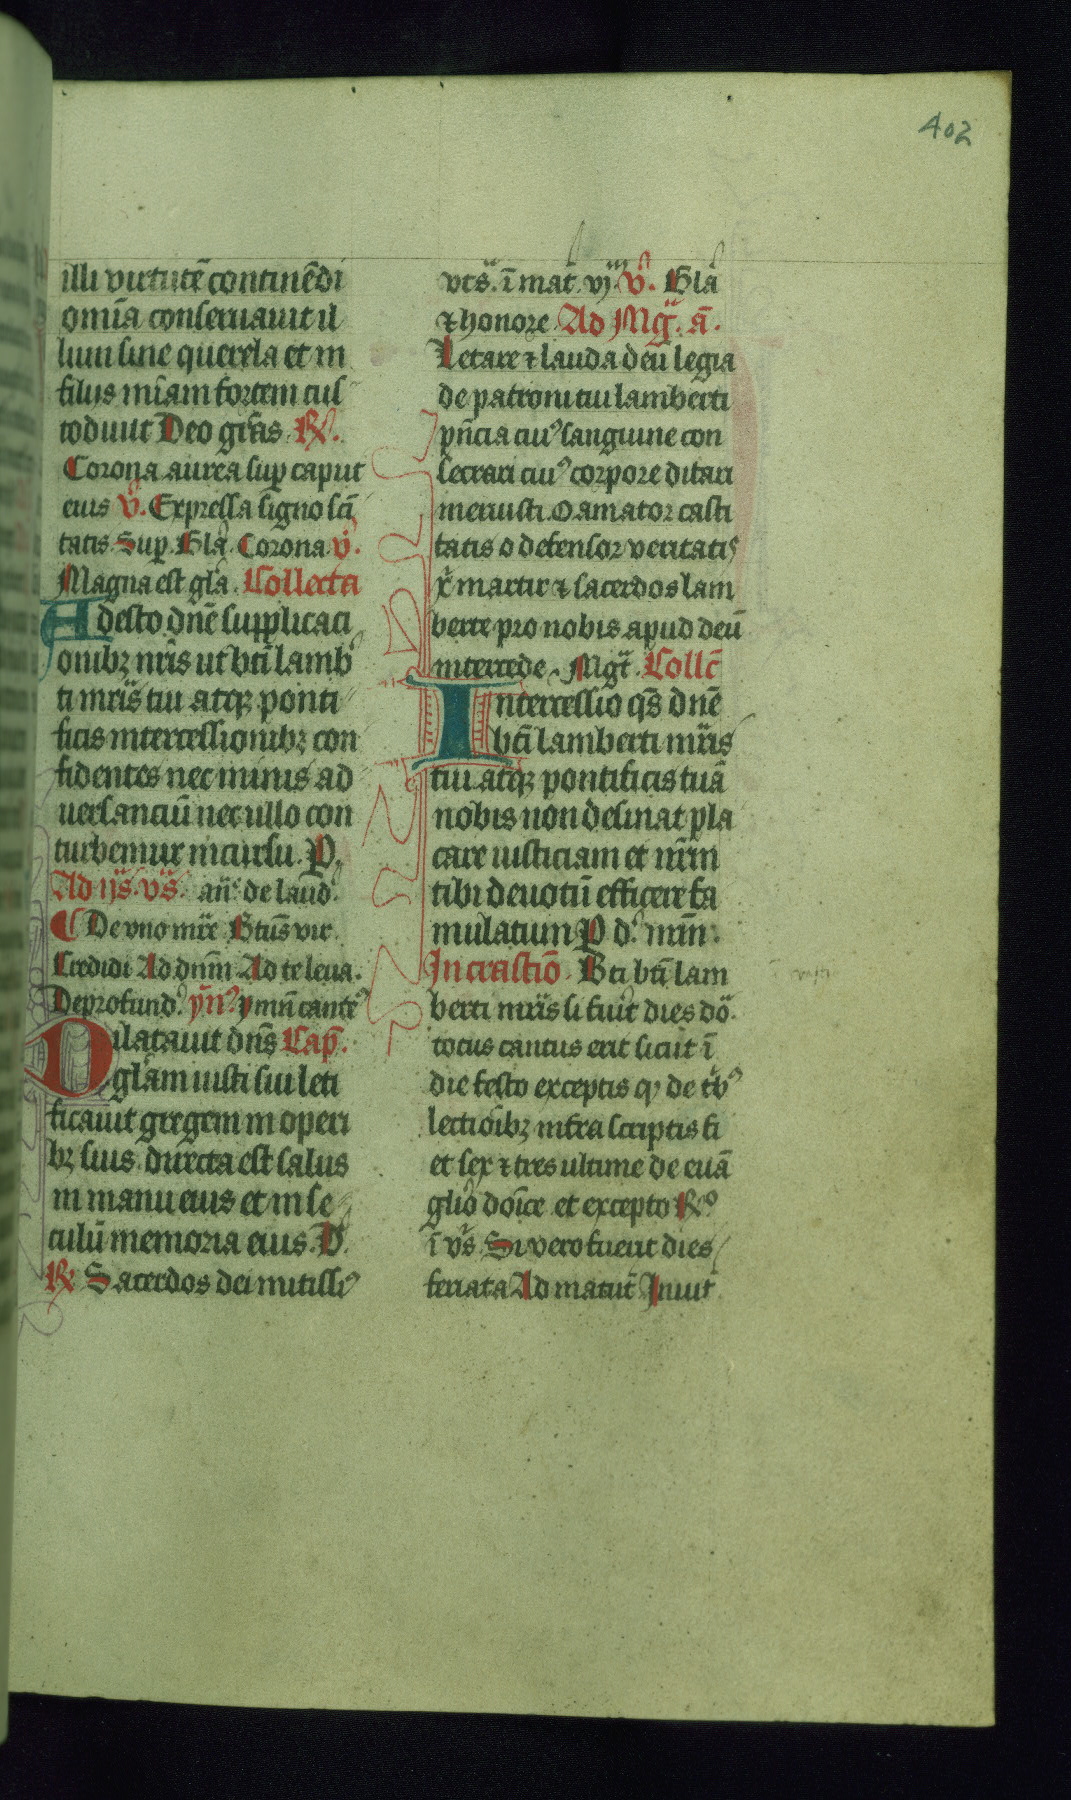 402
illi virtutē continēdi
om̄ia conseruauit il
lum sine querela et in
filijs mīam fortem cus
todiuit Deo grās R̸.
Corona aurea sup caput
eius v̄. Expressa signo scī
tatis Sup. Glā. Corona v̄.
Magna est glā. Collecta
Adesto dnē supplicaci
onibꝫ nr̄is ut bt̄i lamb
ti mr̄is tui atqꝫ ponti
ficis intercessionibꝫ con
fidentes nec minis ad
uersanciū nec ullo con
turbemur incursu. P.
Ad ijs. vs̄. an̄. de laud.
¶ De vno mr̄e Btūs vir
Credidi Ad dnm̄ Ad te leua.
De profund. ymꝰ ymn̄ cante
Dilatauit dns̄ Cap̄.
glām iusti sui leti
ficauit gregem in operi
bꝫ suis directa est salus
in manu eius et in se
culū memoria eius. D.
R̸ Sacerdos dei mitissiꝰ
vts. ī mat̄. vj v̄. Glā
⁊ honore Ad Mḡ. ā.
Letare ⁊ lauda deū legia
de patroni tui lamberti
pn̄cia cuiꝰ sanguine con
secrari cuiꝰ corpore ditari
meruisti. O amator casti
tatis o defensor veritatis
xp̄i martir ⁊ sacerdos lam
berte pro nobis apud deū
intercede. Mgt̄. Collc̄
Intercessio qs̄ dnē
bt̄i lamberti mr̄is
tui atqꝫ pontificis tuā
nobis non desinat pla
care iusticiam et nr̄m
tibi deuotū efficere fa
mulatum P d. nr̄m.
In crastīo. Bti bt̄i lam
berti mr̄is si fuit dies dō.
totus cantus erit sicut ī
die festo exceptis
lectioībꝫ infra scriptis si
et sex ⁊ tres ultime de euā
glio doīce et excepto R̸ꝰ
ī vs̄. Si vero fuerit dies
feriata Ad matut̄ Inuit